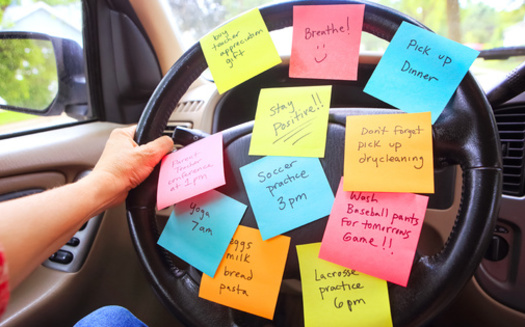 Buy
teacher
appreciation
gift
Breathe!
Pick up
Dinner
Stay
Positive!!
Don't forget
pick up
drycleaning
Parent
Teacher
Conference
at 1 pm
Soccer
practice
3 pm
Wash
Baseball pants
for tomorrows
Game!!
Yoga
7am
eggs
milk
bread
pasta
Lacrosse
practice
6pm